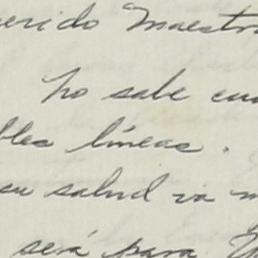 erido Maestro
No sabe cua
bles líneas.
su salud va m
será para